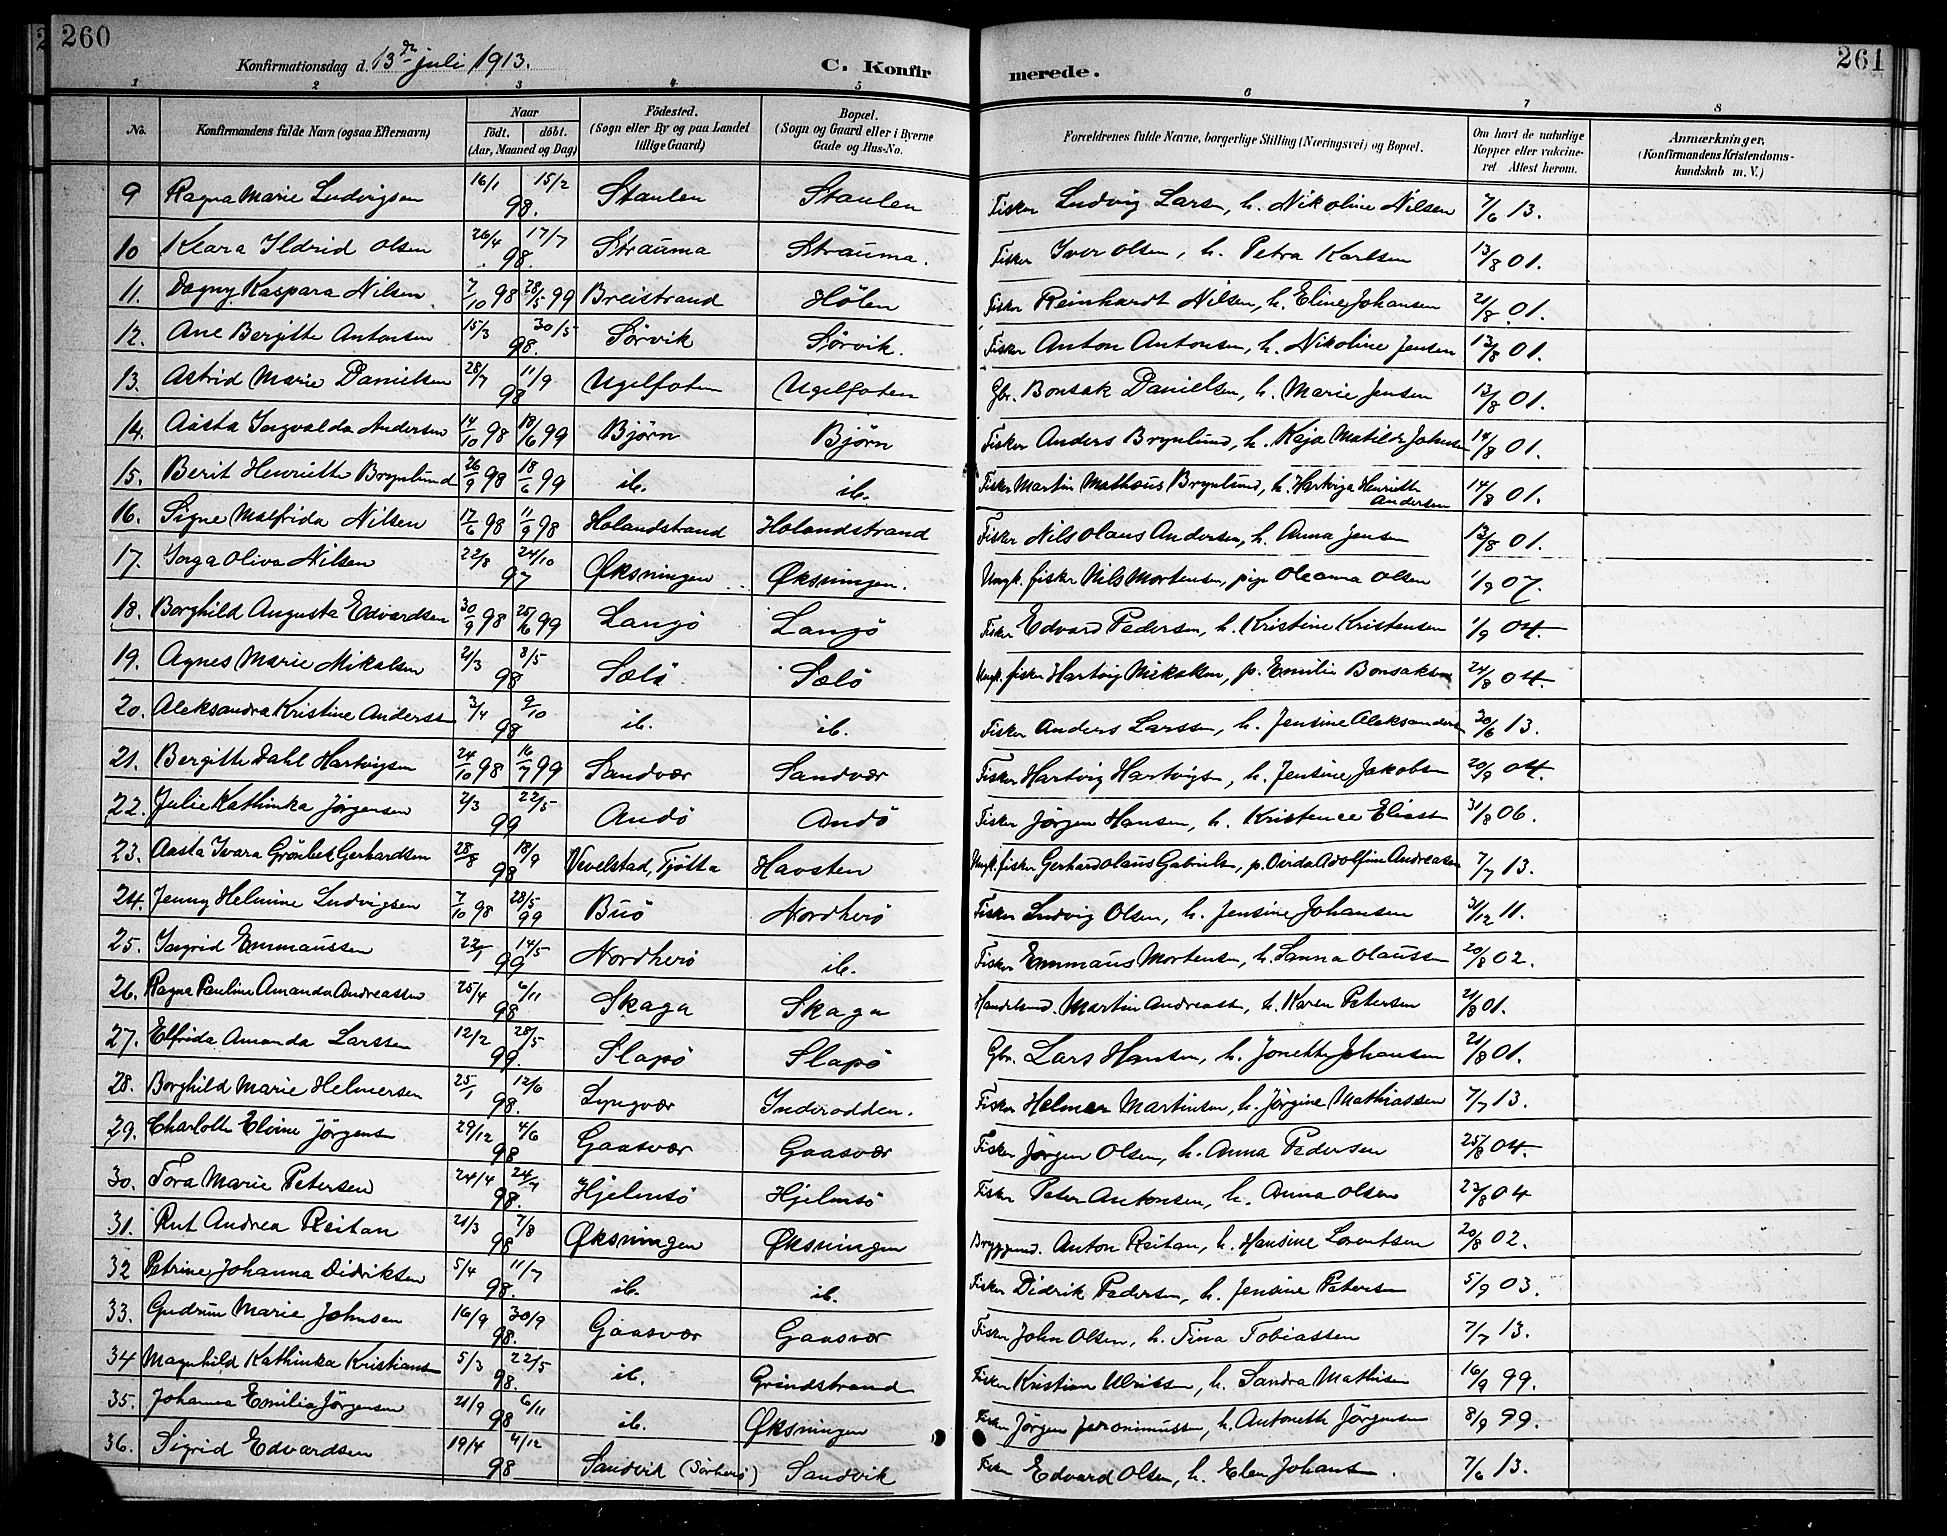 260
Konfirmationsdag d. 13de juli 1913.
C. Konfirmerede.
261
1 2 3 4 5 6 7 8
No. | Konfirmandens fulde Navn (ogsaa Efternavn) | Naar født. døbt. (Aar, Maaned og Dag) | Fødested. (Sogn eller By og paa Landet tillige Gaard) | Bopæl. (Sogn og Gaard eller i Byerne Gade og Hus-No. | Forældrenes fulde Navne, borgerlige Stilling (Næringsvei) og Bopæl. | Om havt de naturlige Kopper eller vakcineret. Attest herom. | Anmærkninger, (Konfirmandens Kristendomskundskab m. V.)
9 | Ragna Marie Ludvigsen | 16/1 15/2 98. | Staulen | Staulen | Fisker Ludvig Larsen, h. Nikoline Nilsen | 7/6 13.
10 | Klara Ildrid Olsen | 26/4 17/7 98. | Strauma | Strauma. | Fisker Iver Olsen, h. Petra Karlsen | 13/8 01.
11. | Dagny Kaspara Nilsen | 7/10 98 28/5 99 | Breistrand | Hølen | Fisker Reinhardt Nilsen, h. Eline Johansen | 21/8 01.
12. | Ane Bergitte Antonsen | 15/3 30/5 98. | Sørvik | Sørvik. | Fisker Anton Antonsen, h. Nikoline Jensen | 13/8 01.
13. | Astrid Marie Danielsen | 28/7 11/9 98 | Ugelfoten | Ugelfoten | Gbr. Bonsak Danielsen, h. Marie Jensen | 13/8 01.
14. | Aasta Ingvalda Andersen | 14/10 98 18/6 99 | Bjørn | Bjørn | Fisker Anders Brynlund, h. Kaja Matilde Johnsen | 14/8 01.
15. | Berit Henriette Brynlund | 26/9 98 18/6 99 | ib. | ib. | Fisker Martin Mathæus Brynlund, h. Hartviga Henriette Andersen | 14/8 01.
16. | Signe Malfrida Nilsen | 17/6 98 11/9 98 | Holandstrand | Holandstrand | Fisker Nils Olaus Andersen, h. Anna Jensen | 13/8 01.
17. | Inga Oliva Nilsen | 22/8 24/10 97 | Øksningen | Øksningen. | Ungk. fisker Nils Mortensen, pige Oleana Olsen | 1/9 07.
18. | Borghild Augusta Edvardsen | 30/9 98 25/6 99 | Langø | Langø | Fisker Edvard Pedersen, h. Kristine Kristensen | 1/9 04.
19. | Agnes Marie Mikalsen | 2/3 8/5 98 | Sælø | Sælø | Ungk. fisker Hartvig Mikalsen, p. Emilie Bonsaksen | 24/8 04.
20. | Aleksandra Kristine Anderssen | 3/4 9/10 98 | ib. | ib. | Fisker Anders Larssen, h. Jensine Aleksandersen | 30/6 13.
21. | Bergitte Dahl Hartvigsen | 24/10 98 16/7 99 | Sandvær | Sandvær | Fisker Hartvig Hartvigsen, h. Jensine Jakobsen | 20/9 04.
22. | Julie Kathinka Jørgensen | 2/3 22/5 99 | Andø | Andø | Fisker Jørgen Hansen, h. Kristence Eliassen | 31/8 06.
23. | Aasta Ivara Grønbek Gerhardsen | 28/8 18/9 98 | Vevelstad, Tjøtta | Havsten | Ungk. fisker Gerhard Olaus Gabrielsen, p. Ovida Adolfine Andreassen | 7/7 13.
24. | Jenny Helmine Ludvigsen | 7/10 98 28/5 99 | Buø | Nordherø | Fisker Ludvig Olsen, h. Jensine Johansen | 31/12 11.
25. | Ingrid Emmaussen | 22/1 14/5 99 | Nordherø | ib. | Fisker Emmaus Mortensen, h. Sanna Olaussen | 20/8 02.
26. | Ragna Pauline Amanda Andreassen | 25/4 6/11 98 | Skaga | Skaga | Handelsmd. Martin Andreassen, h. Karen Petersen | 21/8 01.
27. | Elfrida Amanda Larssen | 12/2 28/5 99. | Slapø | Slapø | Gbr. Lars Hansen, h. Jonette Johansen | 21/8 01.
28. | Borghild Marie Helmersen | 25/1 12/6 98. | Lyngvær | Inderodden. | Fisker Helmer Martinsen, h. Jørgine Mathiassen | 7/7 13.
29. | Charlotte Elvine Jørgensen | 29/12 4/6 98 | Gaasvær | Gaasvær | Fisker Jørgen Olsen, h. Anna Pedersen | 25/8 04.
30. | Tora Marie Petersen | 24/4 24/7 98. | Hjelmsø | Hjelmsø | Fisker Peter Antonsen, h. Anna Olsen | 23/8 04
31. | Rut Andrea Reitan | 21/3 7/8 98 | Øksningen | Øksningen | Bryggemd. Anton Reitan, h. Hansine Lorentsen | 20/8 02.
32 | Petrine Johanna Didriksen | 5/4 11/7 98. | ib. | ib. | Fisker Didrik Pedersen, h. Jensine Petersen | 5/9 03.
33. | Gudrun Marie Johnsen | 16/9 30/9 98. | Gaasvær | Gaasvær | Fisker John Olsen, h. Tina Tobiassen | 7/7 13.
34 | Magnhild Kathinka Kristiansen | 5/3 22/5 98. | ib. | Grindstrand | Fisker Kristian Ulriksen, h. Sandra Mathisen | 16/9 99.
35. | Johanna Emilie Jørgensen | 21/9 6/11 98 | ib. | Øksningen | Fisker Jørgen Jeronimussen, h. Antonette Jørgensen | 8/9 99.
36. | Sigrid Edvardsen | 19/4 4/12 98 | Sandvik (Sørherø) | Sandvik | Fisker Edvard Olsen, h. Elen Johansen. | 7/6 13.